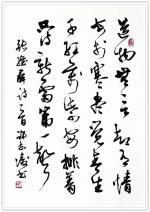 造物無言却有情
每於寒盡覺春生
千紅萬紫安排著
只待新雷第一聲
張維屏詩